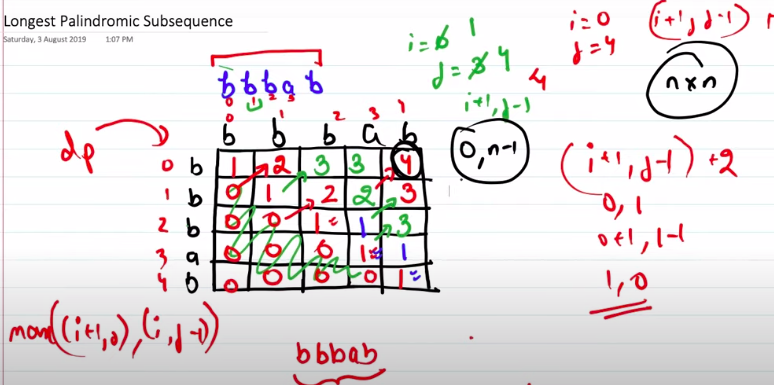 Longest Palindromic Subsequence
Saturday, 3 August 2019 1:07 PM
i=0 1
j=3 4
4
i+1, j-1
i=0
j=4
(i+1, j-1)
n x n
b b b a b
0 1 2 3
0 1 2 3
b b b a b
dp
0 b 1 2 3 3 4
1 b 0 1 2 2 3
2 b 0 0 1 1 3
3 a 0 0 0 1 1
4 b 0 0 0 0 1
0, n-1
(i+1, j-1) +2
0, 1
0+1, 1-1
1, 0
max((i+1, j), (i, j-1))
bbbab